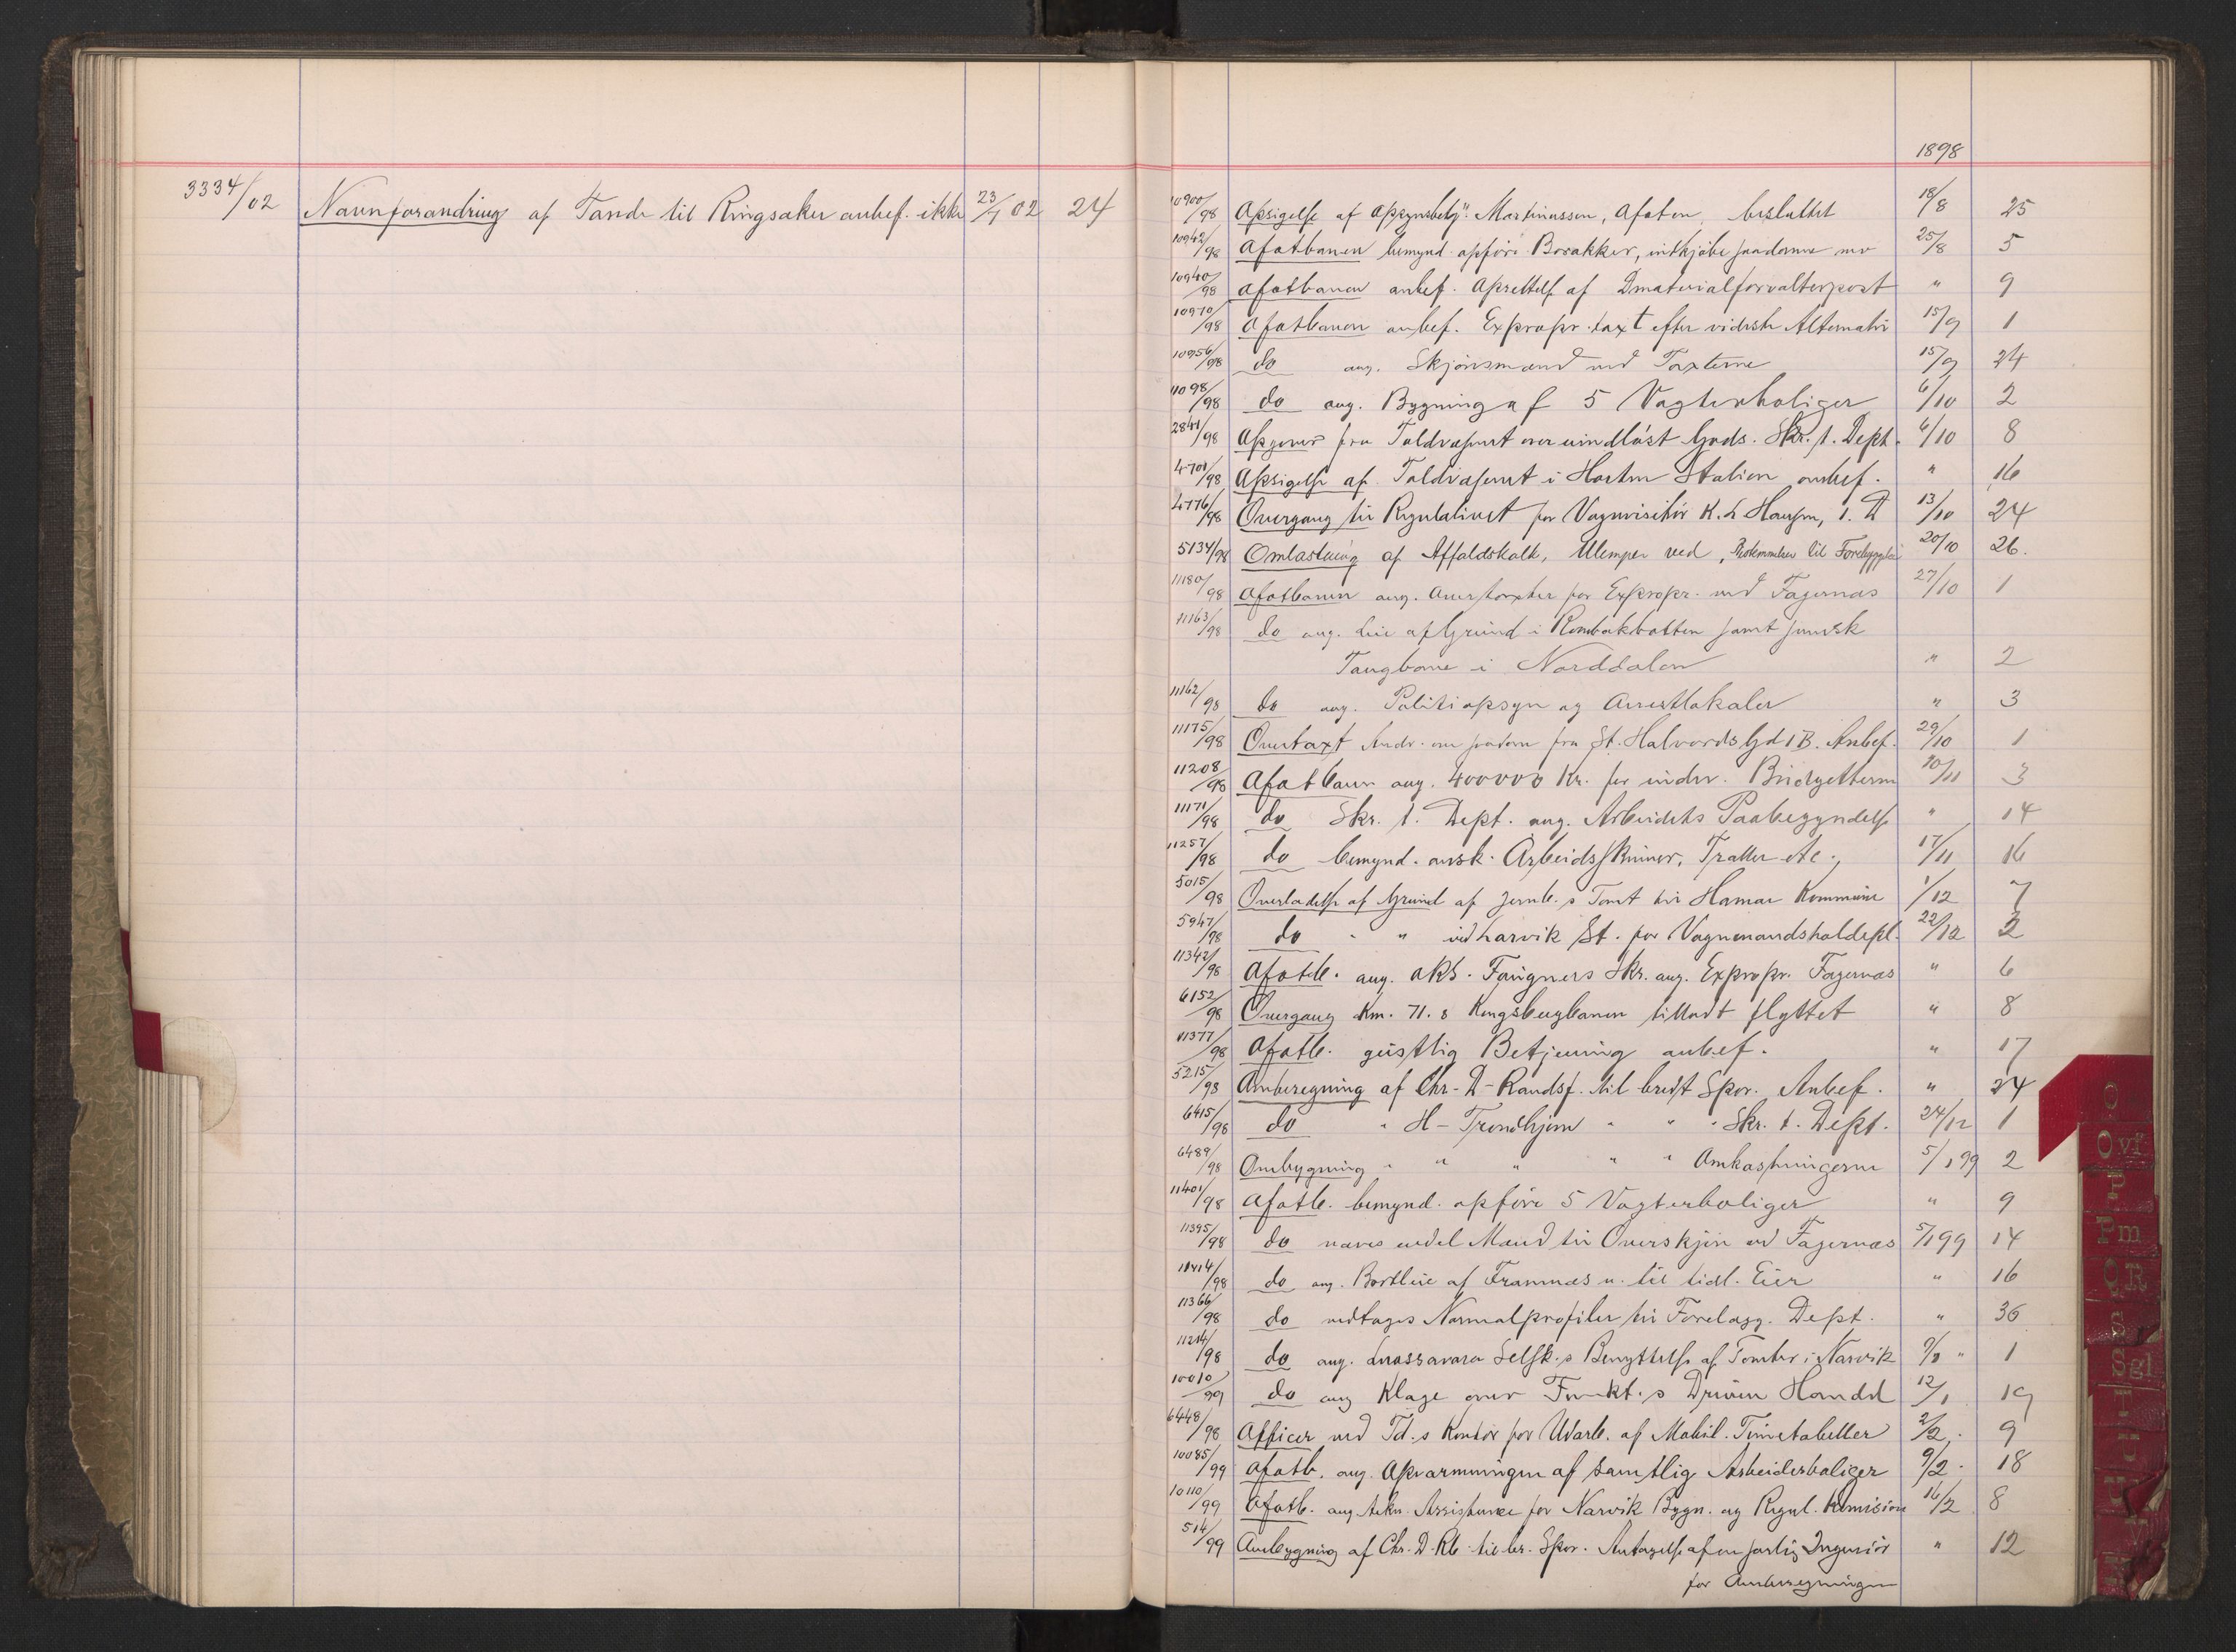 3334/02 Navnforandring af Tande til Ringsaker anbef. ikke 23/7 02 24
1898
10900/98 Opsigelse af Opsynsbetj. Martinussen, Ofoten, besluttet 18/8 25
10942/98 Ofotbanen bemynd. opføre Barakker, indkjøbe saadanne mv 25/8 5
10940/98 Ofotbanen anbef. Oprettelse af Dmaterialforvalterpost " 9
10970/98 Ofotbanen anbef. Expropr. taxt efter vidreste Alternativ 15/9 1
10956/98 do ang. Skjønsmænd ved Taxterne 15/9 24
11098/98 do ang. Bygning af 5 Vogterboliger 6/10 2
2841/98 Opgaver fra Toldvæsenet over uindløst Gods. Skr. t. Dept. 6/10 8
4701/98 Opsigelse af Toldvæsenet i Horten Station anbef. " 16
4776/98 Overgang til Regulativet for Vognvisitør K. L. Hansen, 1. D 13/10 24
5134/98 Omlastning af Affaldskalk, Ulemper ved, Bestemmelser til Forebyggelse 20/10 26.
11180/98 Ofotbanen ang. Overtaxter for Expropr. ved Fagernæs 27/10 1
11163/98 do ang. Leie af Grund i Rombakbotten samt svensk
Taugbane i Norddalen " 2
11162/98 do ang. Politiopsyn og Arrestlokaler " 3
11175/98 Overtaxt Andr. om saadan fra St. Halvards Gd 1B. Anbef. 29/10 1
11208/98 Ofotbanen ang. 400000 Kr. for indev. Budgettermin 10/11 3
11171/98 do Skr. t. Dept. ang. Arbeidets Paabegyndelse " 14
11257/98 do bemynd. ansk. Arbeidsskinner, Traller etc., 17/11 16
5015/98 Overladelse af Grund af Jernb.s Tomt til Hamar Kommune 1/12 7
5947/98 do " " ved Larvik St. for Vognmandsholdepl. 22/12 2
11342/98 Ofotb. ang. Aks. Fougners Skr. ang. Expropr. Fagernæs " 6
6152/98 Overgang Km. 71.8 Kongsbergbanen tilladt flyttet " 8
11377/98 Ofotb. geistlig Betjening anbef. " 17
5215/98 Omberegning af Chr-D-Randsf. til bredt Spor. Anbef. " 24
6415/98 do " H-Trondhjem " " " Skr. t. Dept. 24/12 1
6489/98 Ombygning " " " " " Omkostningerne 5/1 99 2
11401/98 Ofotb. bemynd. opføre 5 Vogterboliger " 9
11395/98 do navns endel Mænd til Overskjøn ved Fagernæs 5/1 99 14
11414/98 do ang. Bortleie af Framnæs n. til tidl. Eier " 16
11366/98 do vedtages Normalprofiler til Forelægg. Dept. " 36
11214/98 do ang. Luossavara Selsk.s Benyttelse af Tomter i Narvik 9/1 " 1
10010/99 do ang Klage over Funkt.s Driven Handel 12/1 19
6448/98 Officer ved Td.s Kontor for Udarb. af Mobil. Timetabeller 2/2. 9
10085/99 Ofotb. ang. Opvarmningen af samtlig Arbeiderboliger 9/2. 18
10110/99 Ofotb. ang. tekn. Assistance for Narvik Bygn. og Regul. Komision 16/2 8
514/99 Ombygning af Chr. D. Rb. til br. Spor. Antagelse af en særlig Ingeniør " 12
for Omberegningen
O
Ovf
P
Pm
Q R
S
Sgl
T